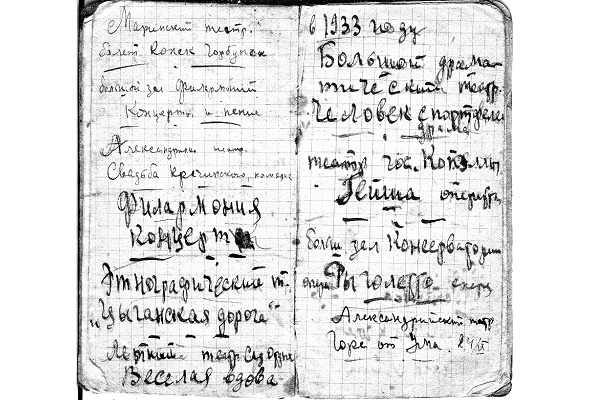 Мариинский театр.
балет. Конек Горбунок
большой зал Филармоний
Концерты и пение
Александрин. театр.
Свадьба Кречинского, комедия
Филармония
Концерт
Этнографический т.
„Цыганская дорога"
Летний театр Сад Отдыха
Веселая вдова
в 1933 году
Большой драма-
тический театр.
Человек с портфелем
драма
театр гос.
Гейша оперетта
Больш зал Консерватории
опера Рыголетто опера
Александрийский театр
Горе от Ума.